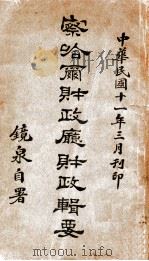 中華民國十一年三月刋印
察哈爾財政廳財政輯要
鏡泉自署
www.tushu001.com